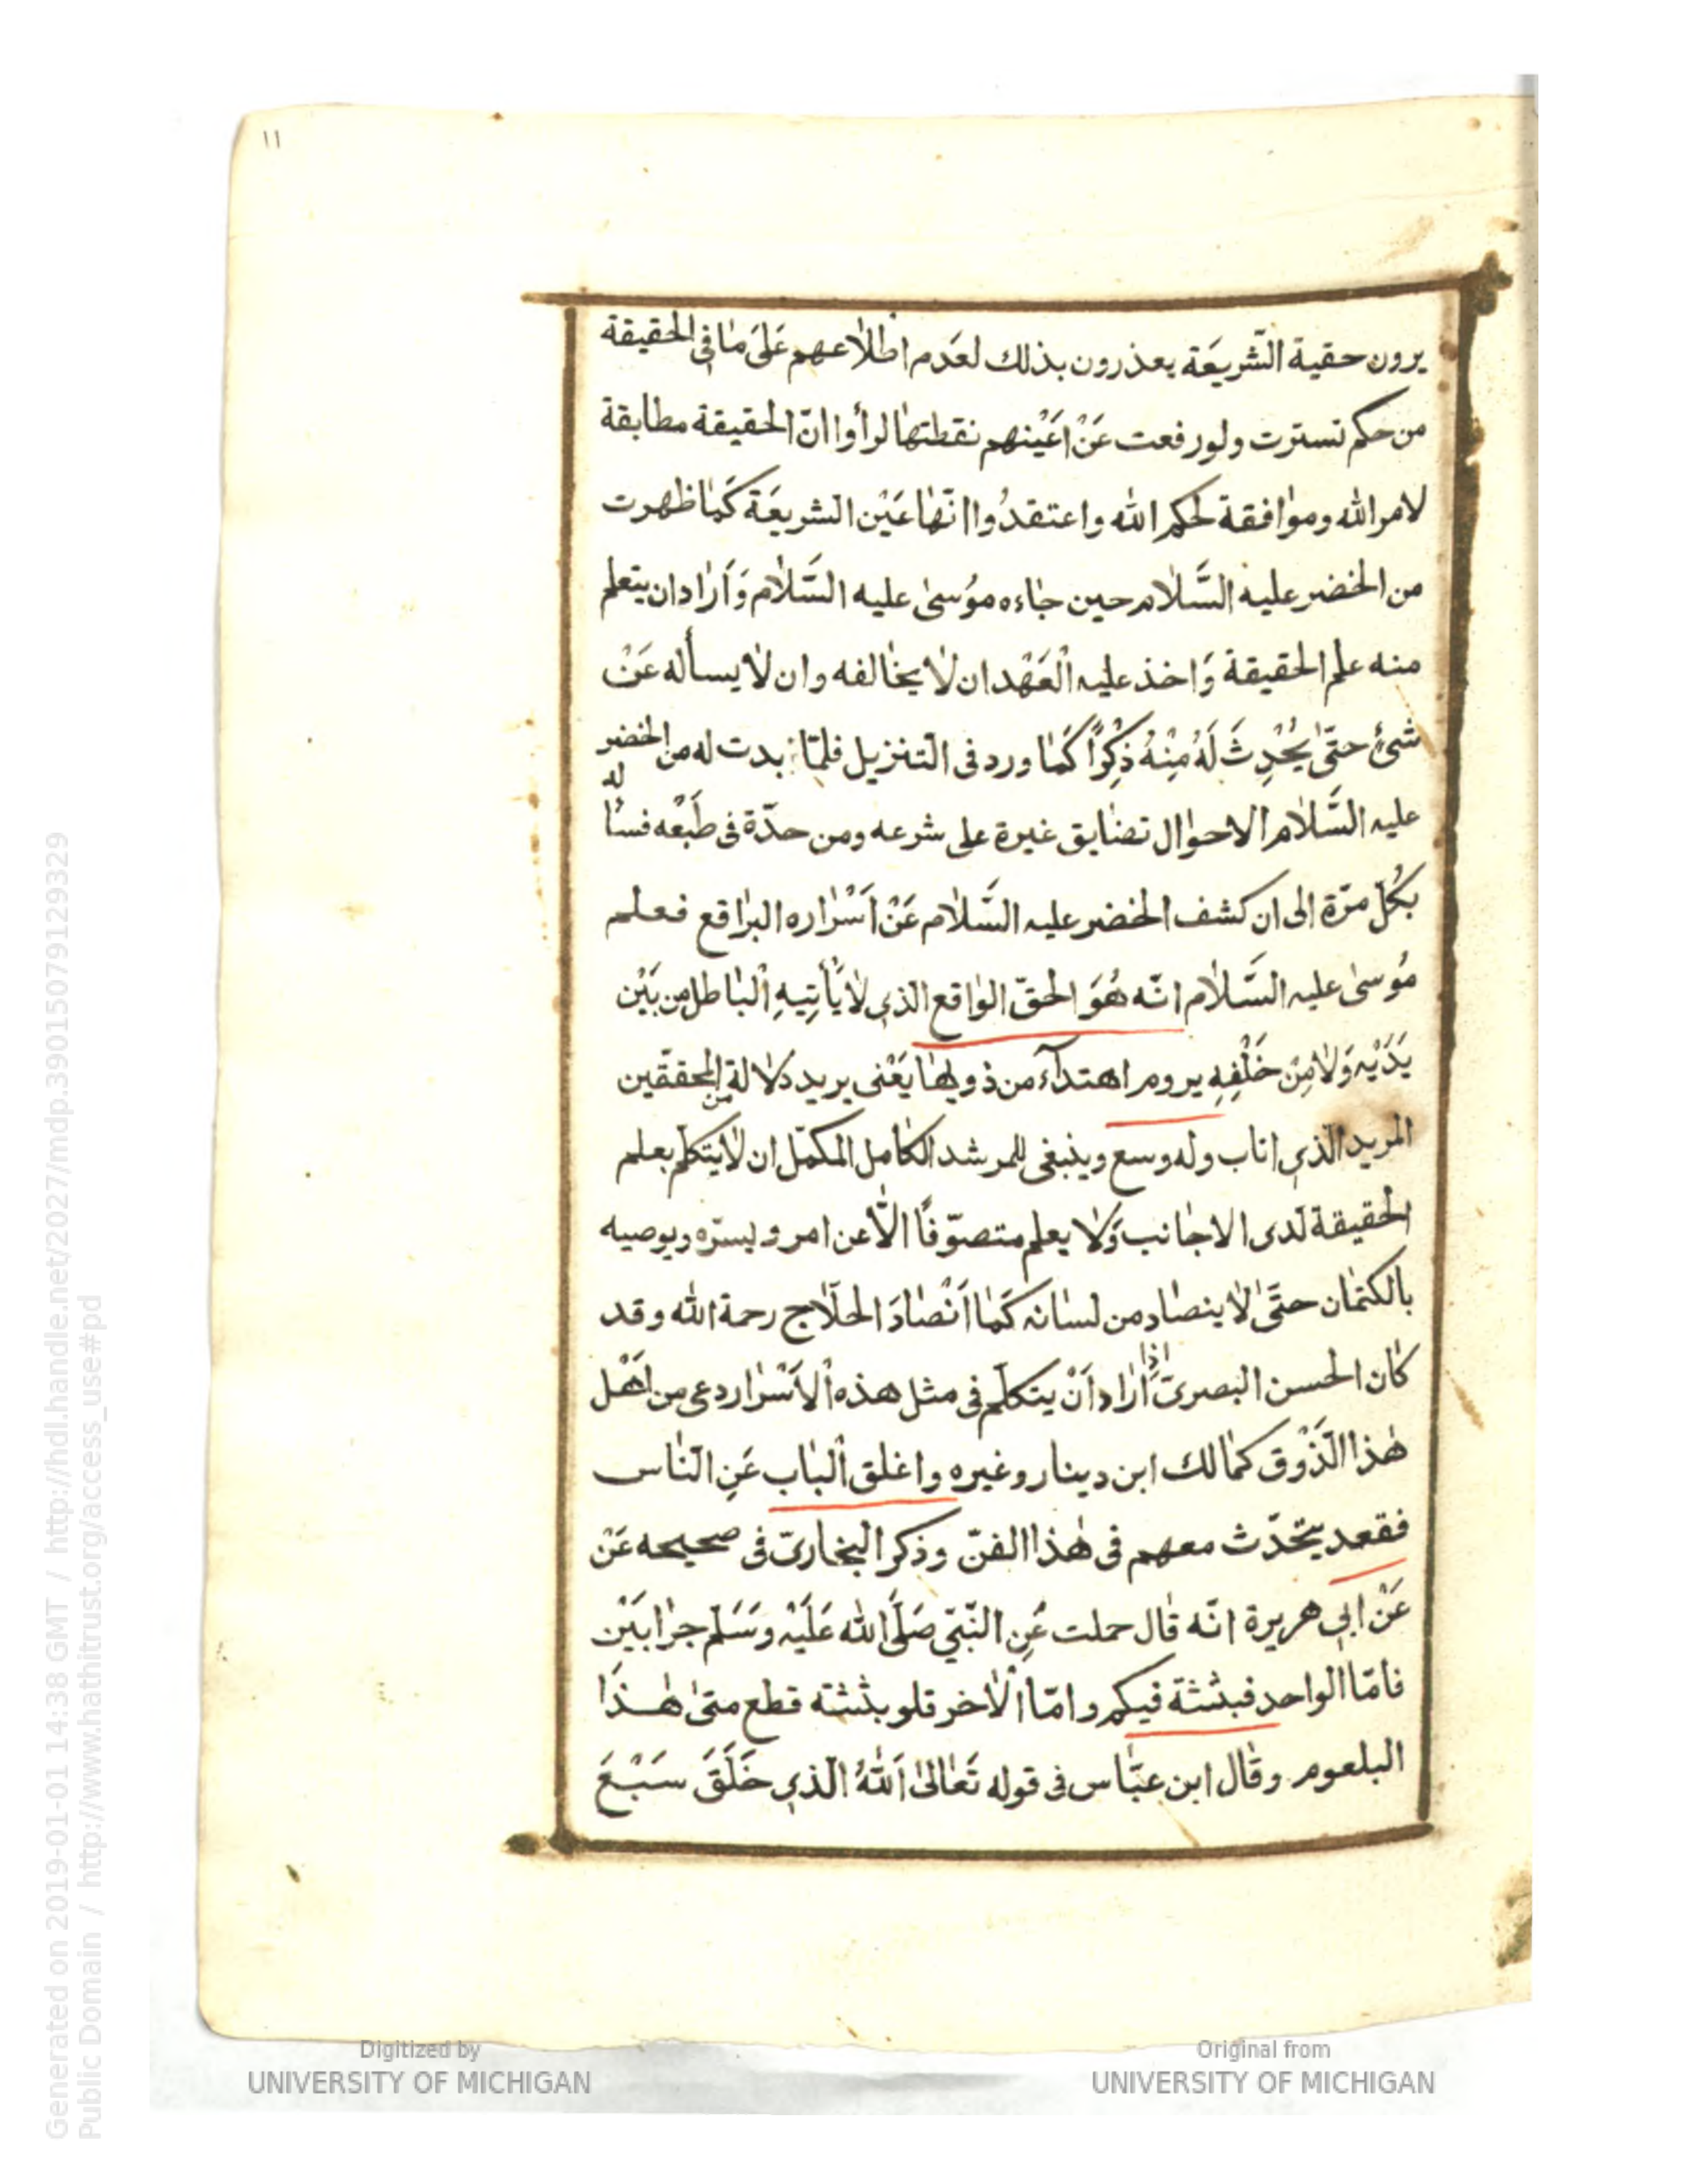 ١١
يرون حقية الشّريعَة يعذرون بذلك لعَدم اطلاعهم عَلَى مَا فى الحقيقة
من حكم تسترت ولو رفعت عَنْ اعَيْنهم نقطتهَا لرأوا انّ الحقيقة مطابقة
لامر الله وموافقة لحكم الله واعتقدُوا انّهَا عَيْن الشريعَة كَمَا ظهرت
من الخضر عليه السَّلام حين جاءه مُوسىٰ عليه السَّلام وَاَرَاد ان يتعلم
منه علم الحقيقة وَاخذ عليه الْعَهْد ان لا يخالفه وان لا يسأله عَنْ
شئ حتّى يُحْدِثَ لَهُ مِنْهُ ذِكْرًا كَمَا ورد فى التنزيل فلمّا بدت له من الخضر
عليه السَّلام الاحوال تضايق غيرة على شرعه ومن حدّة فى طَبْعه فسأله
بكُلّ مرّة الى ان كشف الخضر عليه السَّلام عَنْ اَسْرَاره البراقع فعلم
مُوسىٰ عليه السَّلام انّه هُوَ الحقّ الواقع الذى لا يَأتِيهِ الْبَاطل من بَيْن
يَدَيْه وَلا مِنْ خَلْفِهِ يروم اهتدآء من ذويهَا يَعْنى يريد دلالة من المحققين
المريد الّذى اناب وله وسع وينبغى للمرشد الكامل المكمّل ان لا يتكلّم بعلم
الحقيقة لَدى الاجانب وَلا يعلم متصوّفًا الّا عن امر ويسرّه ويوصيه
بالكتمان حتَّى لا ينصاد من لسَانه كَمَا اَنْصَادَ الحلّاج رحمة الله وقد
كان الحسن البصرىّ اذا اَرَاد اَنْ يتكلّم فى مثل هذه الاَسْرَار دعى من اَهْل
هٰذا الذَّوْق كمالك ابن دينار وغيره واغلق الْبَاب عَنِ النّاس
فقعد يتحّدّث معهم فى هٰذا الفنّ وذكر البخارىّ فى صحيحه عَنْ
عَنْ ابى هريرة انّه قال حملت عَنِ النّبيّ صَلَّى الله عَلَيْه وَسَلّم جرابَيْن
فامّا الواحد فبثثة فيكم وامّا الْاخر فلو بثثته قطع متىٰ هٰذَا
البلعوم وقال ابن عبّاس فى قوله تَعَالىٰ اَللهُ الّذى خَلَقَ سَبْعَ
Digitized by
UNIVERSITY OF MICHIGAN
Original from
UNIVERSITY OF MICHIGAN
Generated on 2019-01-01 14:38 GMT / http://hdl.handle.net/2027/mdp.39015079129329
Public Domain / http://www.hathitrust.org/access_use#pd